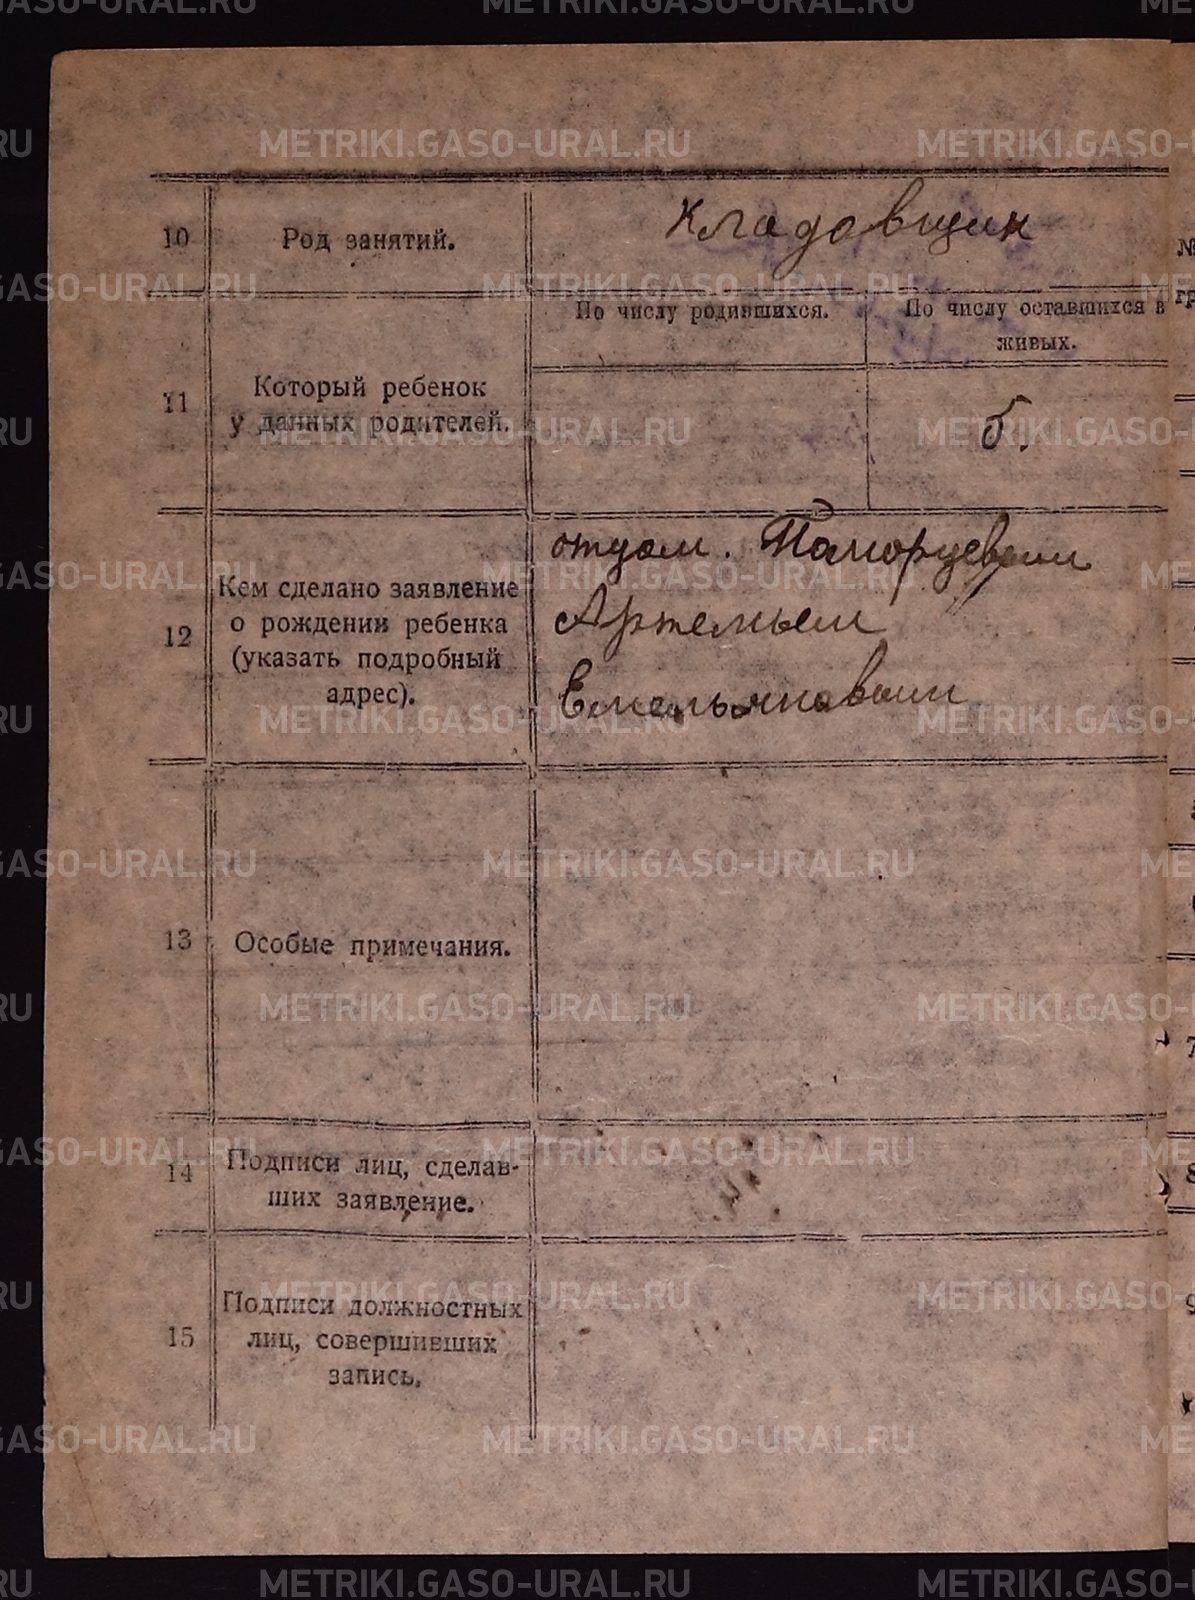 10 Род занятий. Кладовщик
По числу родившихся. По числу оставшихся в
живых.
11 Который ребенок
у данных родителей. 5.
12 Кем сделано заявление
о рождении ребенка
(указать подробный
адрес).
отцом. Поморцевым
Артемьем
Емельяновым
13 Особые примечания.
14 Подписи лиц, сделав-
ших заявление.
15 Подписи должностных
лиц, совершивших
запись.
METRIKI.GASO-URAL.RU